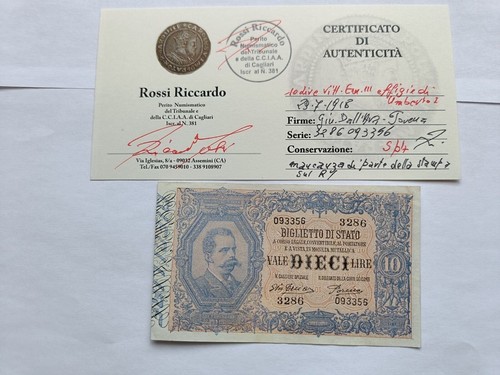 Rossi Riccardo
Perito
Numismatico
del Tribunale
e della C.C.I.A.A.
di Cagliari
Iscr al N. 381
CERTIFICATO
DI
AUTENTICITÀ
Rossi Riccardo
Perito Numismatico
del Tribunale e
della C.C.I.A.A. di Cagliari
Iscr al N. 381
Via Iglesias, 8/a - 09032 Assemini (CA)
10 Lire Vitt. Em. III effigie di
Umberto I
29-7-1918
Firme: Giu. Dell'Ara - Porena
Serie: 3286 093356
Conservazione: Spl+
mancanza di parte della stampa
sul R/
093356 3286
BIGLIETTO DI STATO
A CORSO LEGALE, CONVERTIBILE, AL PORTATORE
E A VISTA IN MONETA METALLICA
VALE DIECI LIRE
10
3286 093356